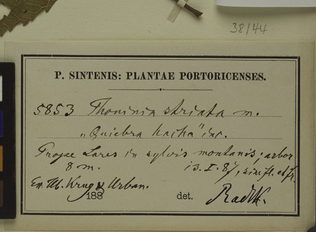 38/44
P. SINTENIS: PLANTAE PORTORICENSES.
5853 Thouinia striata m.
„Quiebra hacha" inc.
Prope Lares in sylvis montanis; arbor
8 m. 13.I.87, c. fr.
Ex Hb. Krug & Urban.
188 det. Radlk.